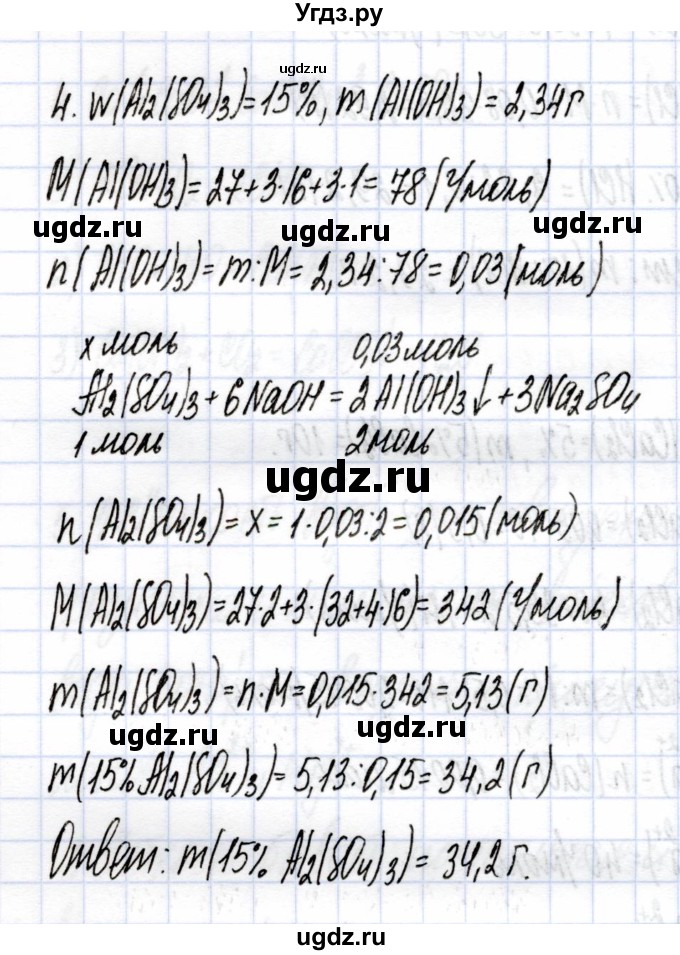 Угдз.ру
ugdz.ru
4. w(Al₂(SO₄)₃)=15%, m(Al(OH)₃)=2,34г
M(Al(OH)₃)=27+3·16+3·1=78(г/моль)
ugdz.ru ugdz.ru ugdz.ru
n(Al(OH)₃)=m:M=2,34:78=0,03(моль)
х моль 0,03 моль
Al₂(SO₄)₃+6NaOH=2Al(OH)₃↓+3Na₂SO₄
1 моль 2 моль
ugdz.ru
n(Al₂(SO₄)₃)=x=1·0,03:2=0,015(моль)
M(Al₂(SO₄)₃)=27·2+3·(32+4·16)=342(г/моль)
m(Al₂(SO₄)₃)=n·M=0,015·342=5,13(г)
ugdz.ru ugdz.ru
m(15% Al₂(SO₄)₃)=5,13:0,15=34,2(г)
Ответ: m(15% Al₂(SO₄)₃)=34,2г.
ugdz.ru
ugdz.ru